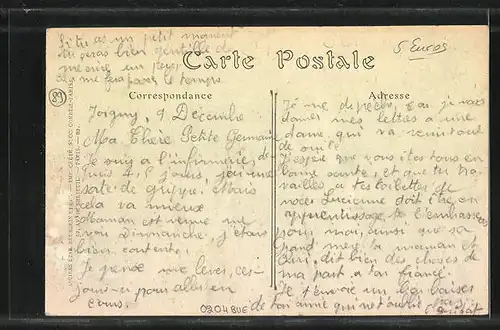 Si tu as un petit moment
tu seras bien gentille de
me
me fra passer le temps
5 Euros
Carte Postale
Correspondance
Adresse
89
Joigny, 9 Décembre
Ma Chère Petite Germaine
Je suis à l'infirmerie, de-
puis 4, 5 jours, j'ai une
sorte de grippe. Mais
cela va mieux
Maman est venue me
voir Dimanche, j'étais
bien contente.
Je pense me lever, ces
jours-ci pour aller en
cours.
Je me dépêche, car je vais
donner mes lettres à une
dame qui va
de suite
J'espère que vous êtes tous en
bonne santé, et que tu tra-
vailles à tes toilettes de
noces. Lucienne doit être en
apprentissage. tu l'embrasses
pour moi, ainsi que ta
Grand'mère, ta maman et
dit bien des choses de
ma part à ton
Je t'envoie un gros baiser
de ton amie qui ne t'oublie pas
020480E